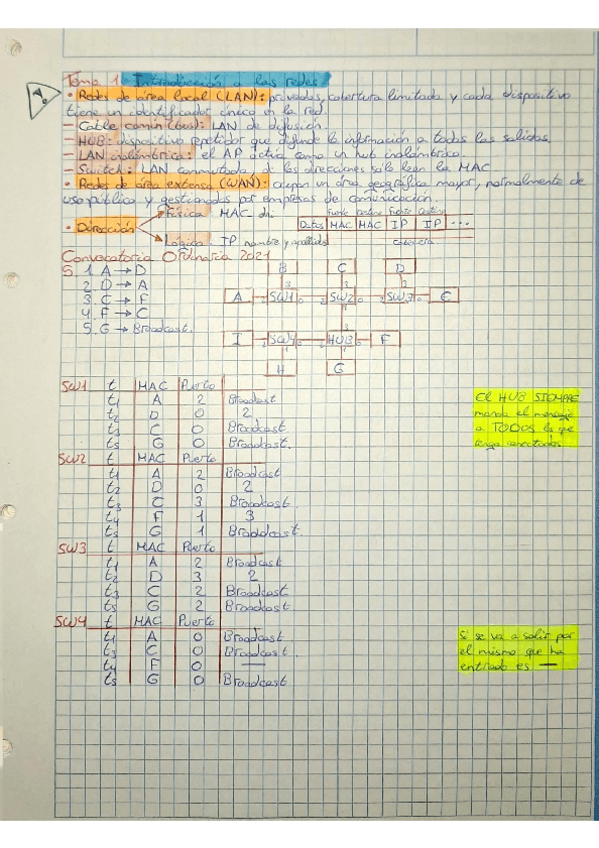 Tema 1: Introducción a las redes.
• Redes de área local (LAN): privadas, cobertura limitada y cada dispositivo
tiene un identificador único en la red.
- Cable común (bus): LAN de difusión.
- HUB: dispositivo repetidor que difunde la información a todas las salidas.
- LAN inalámbrica: el AP actúa como un hub inalámbrico.
- Switch: LAN conmutada de las direcciones solo leen la MAC
• Redes de área extensa (WAN): ocupan un área geográfica mayor, normalmente de
uso público y gestionados por empresas de comunicación.
• Dirección
Física: MAC dni
Lógica: IP nombre y apellidos
Fuente destino Fuente Destino
Datos MAC MAC IP IP ...
cabecera
Convocatoria Ordinaria 2021
5. 1 A → D
2. D → A
3. C → F
4. F → C
5. G → Broadcast.
B C D
3 3 2
A 2 SW1 0 2 SW2 0 2 SW3 E
I 2 SW4 0 HUB F
H G
SW1 t MAC Puerto
t1 A 2 Broadcast
t2 D 0 2
t3 C 0 Broadcast
t5 G 0 Broadcast.
SW2 t MAC Puerto
t1 A 2 Broadcast
t2 D 0 2
t3 C 3 Broadcast.
t4 F 1 3
t5 G 1 Broaddcast.
SW3 t MAC Puerto
t1 A 2 Broadcast
t2 D 3 2
t3 C 2 Broadcast
t5 G 2 Broadcast.
SW4 t MAC Puerto
t1 A 0 Broadcast
t3 C 0 Broadcast.
t4 F 0 —
t5 G 0 Broadcast
El HUB SIEMPRE
manda el mensaje
a TODOS lo que
tenga conectados.
Si se va a salir por
el mismo que ha
entrado es —